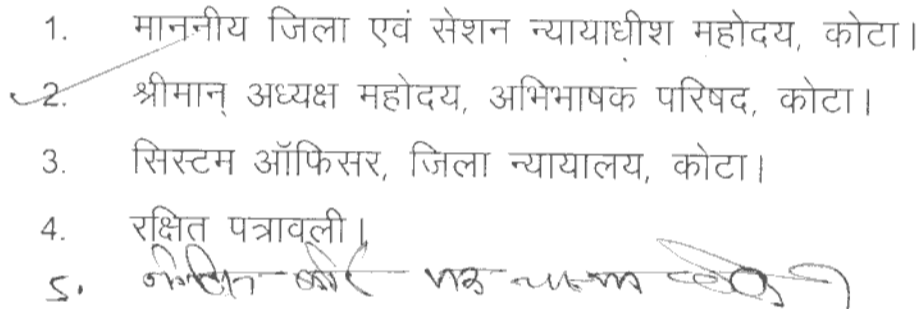 1. माननीय जिला एवं सेशन न्यायाधीश महोदय, कोटा।
2. श्रीमान् अध्यक्ष महोदय, अभिभाषक परिषद, कोटा।
3. सिस्टम ऑफिसर, जिला न्यायालय, कोटा।
4. रक्षित पत्रावली।
5. नोटिस बोर्ड